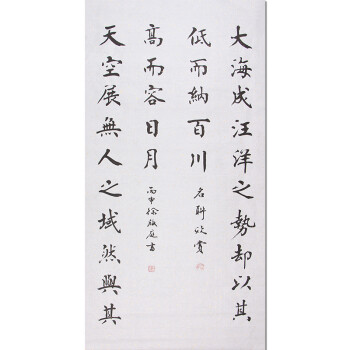 大海成汪洋之勢却以其
低而納百川
名聯欣賞
天空展無人之域然與其
高而容日月
丙申徐庭書